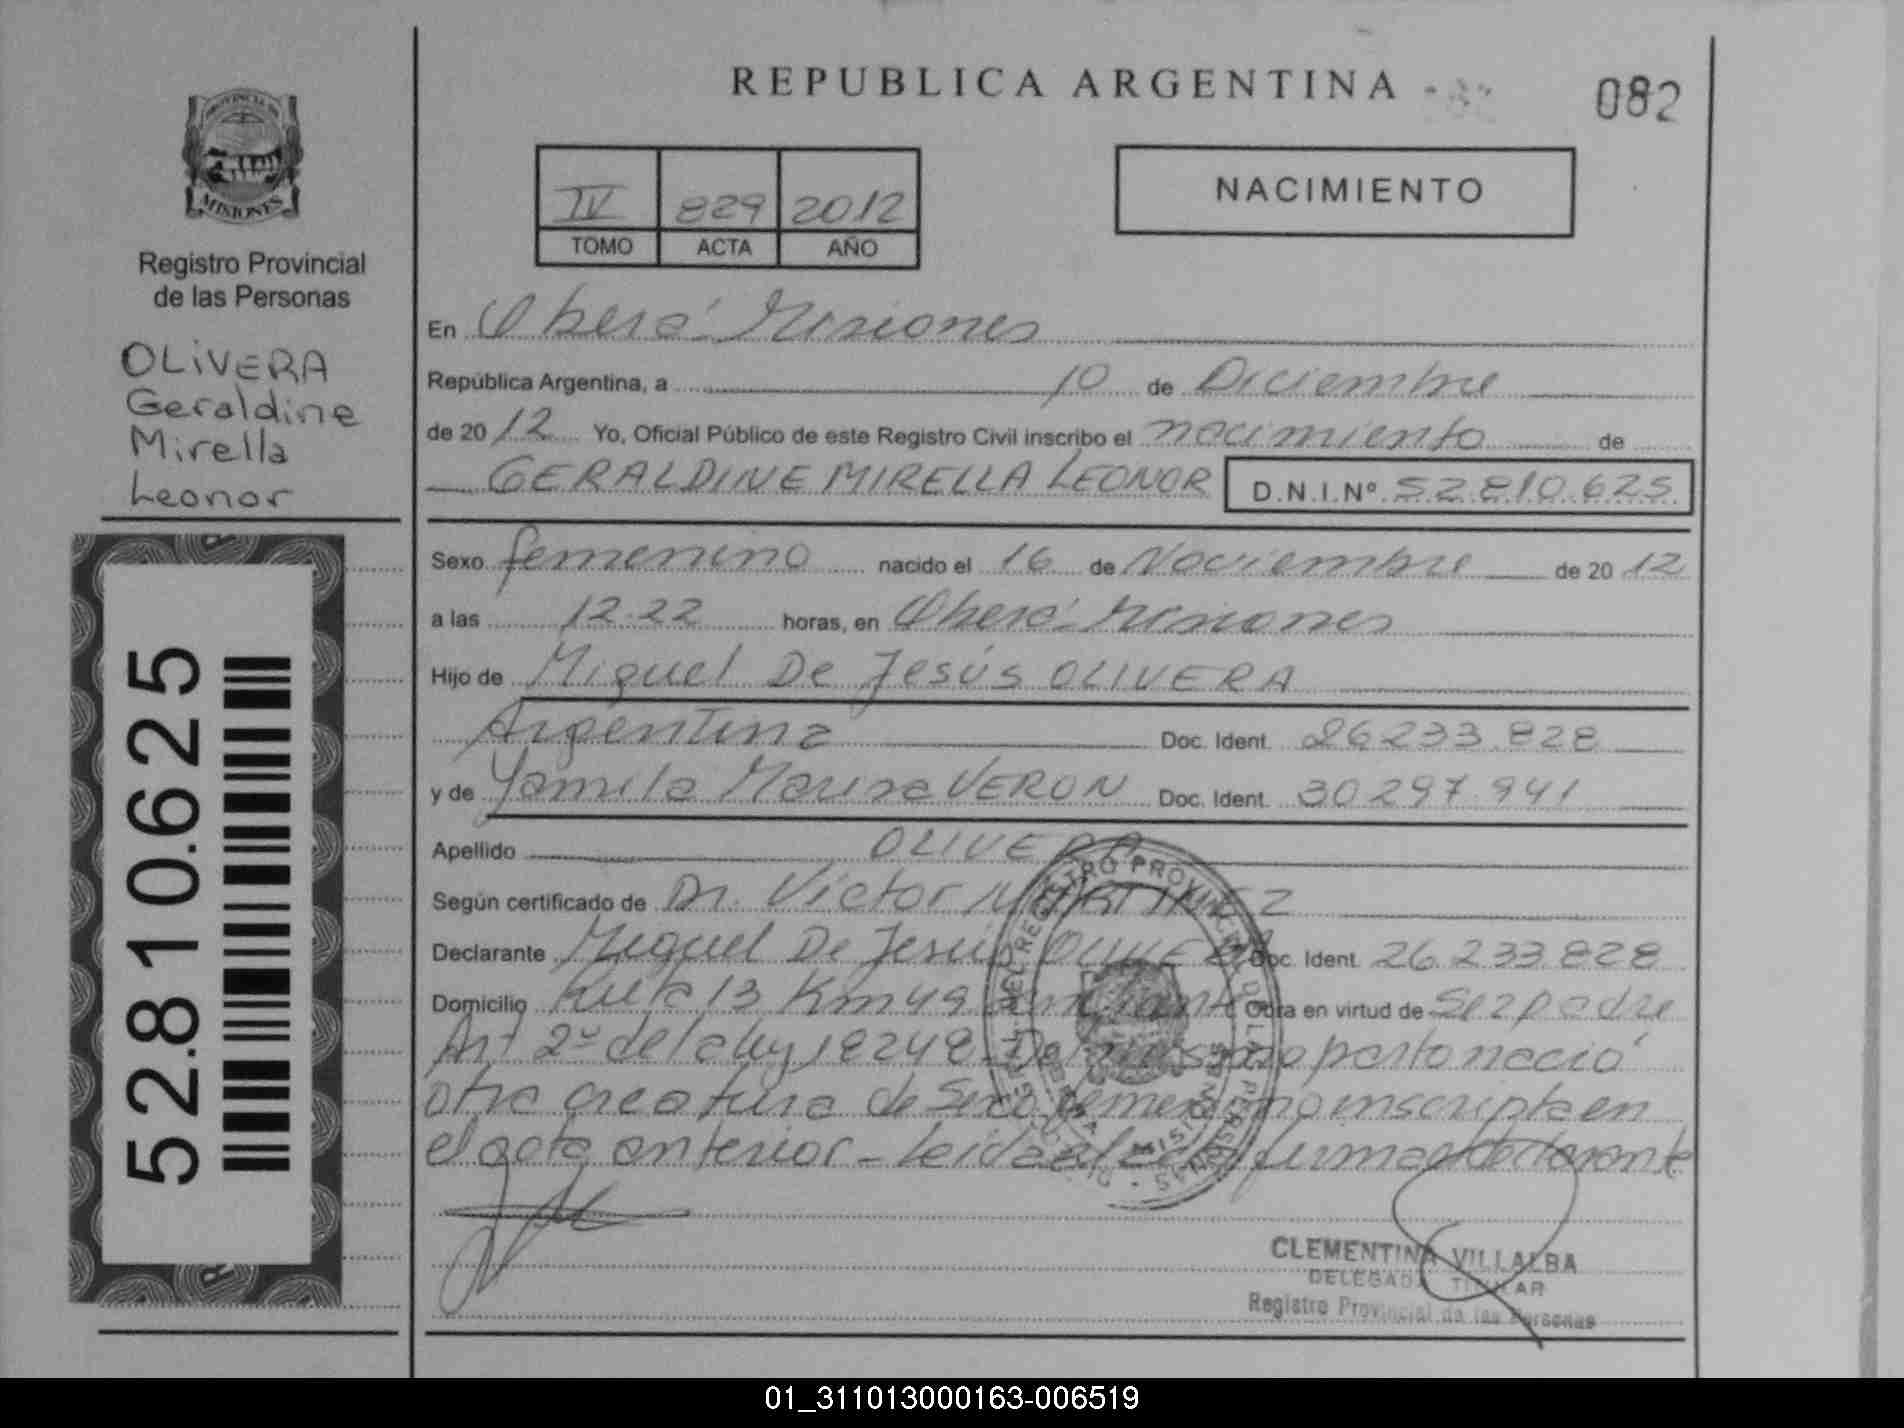 REPUBLICA ARGENTINA
082
PROVINCIA DE
MISIONES
Registro Provincial
de las Personas
OLIVERA
Geraldine
Mirella
Leonor
52.810.625
IV 829 2012
TOMO ACTA AÑO
NACIMIENTO
En Oberá Misiones
República Argentina, a 10 de Diciembre
de 2012 Yo, Oficial Público de este Registro Civil inscribo el nacimiento de
GERALDINE MIRELLA LEONOR D.N.I.Nº 52.810.625
Sexo femenino nacido el 16 de Noviembre de 2012
a las 12.22 horas, en Oberá Misiones
Hijo de Miguel De Jesús OLIVERA
Argentina Doc. Ident. 26.233.828
y de Yamila Marisa VERON Doc. Ident. 30.297.941
Apellido OLIVERA
Según certificado de Dr. Victor MARTINEZ
Declarante Miguel De Jesús OLIVERA Doc. Ident. 26.233.828
Domicilio Ruta 13 Km 49 Obra en virtud de Ser padre
Art 2º de la ley 18248 - Del mismo parto nació
otra creatura de Sexo femenino inscripta en
el acta anterior - Leida el acta firma declarante
REGISTRO PROVINCIAL DE LAS PERSONAS
CLEMENTINA VILLALBA
DELEGADA TITULAR
Registro Provincial de las Personas
01_311013000163-006519